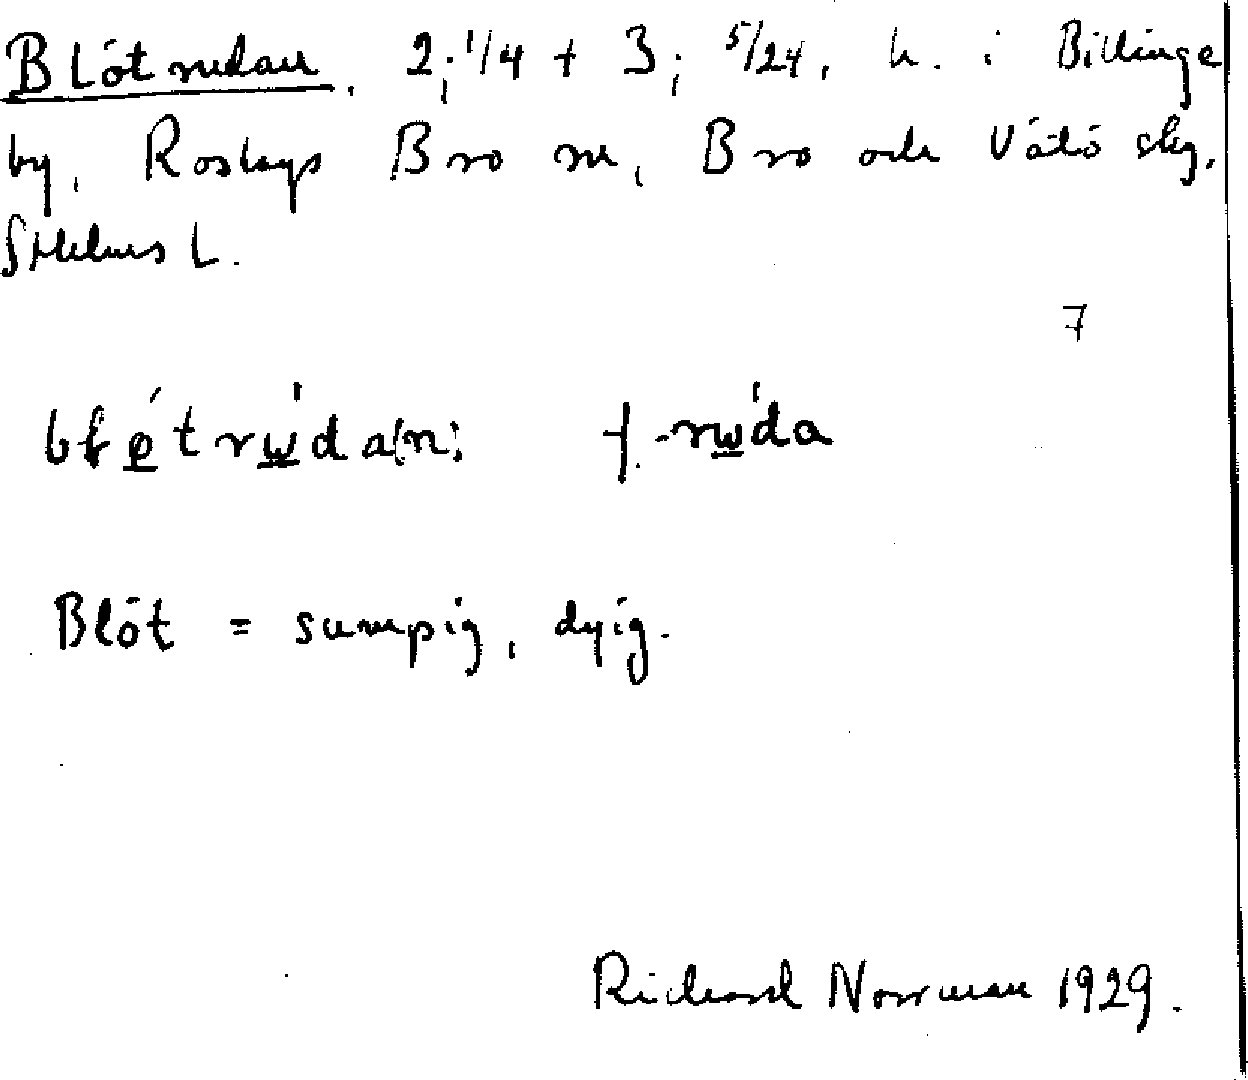 Blötrudan, 2; 1/4 + 3; 5/24, h. i Billinge
by, Roslags Bro sn, Bro och Vätö skg,
Sthlms L.
7
rẃda
Blöt = sumpig, dyig.
Richard Norrman 1929.